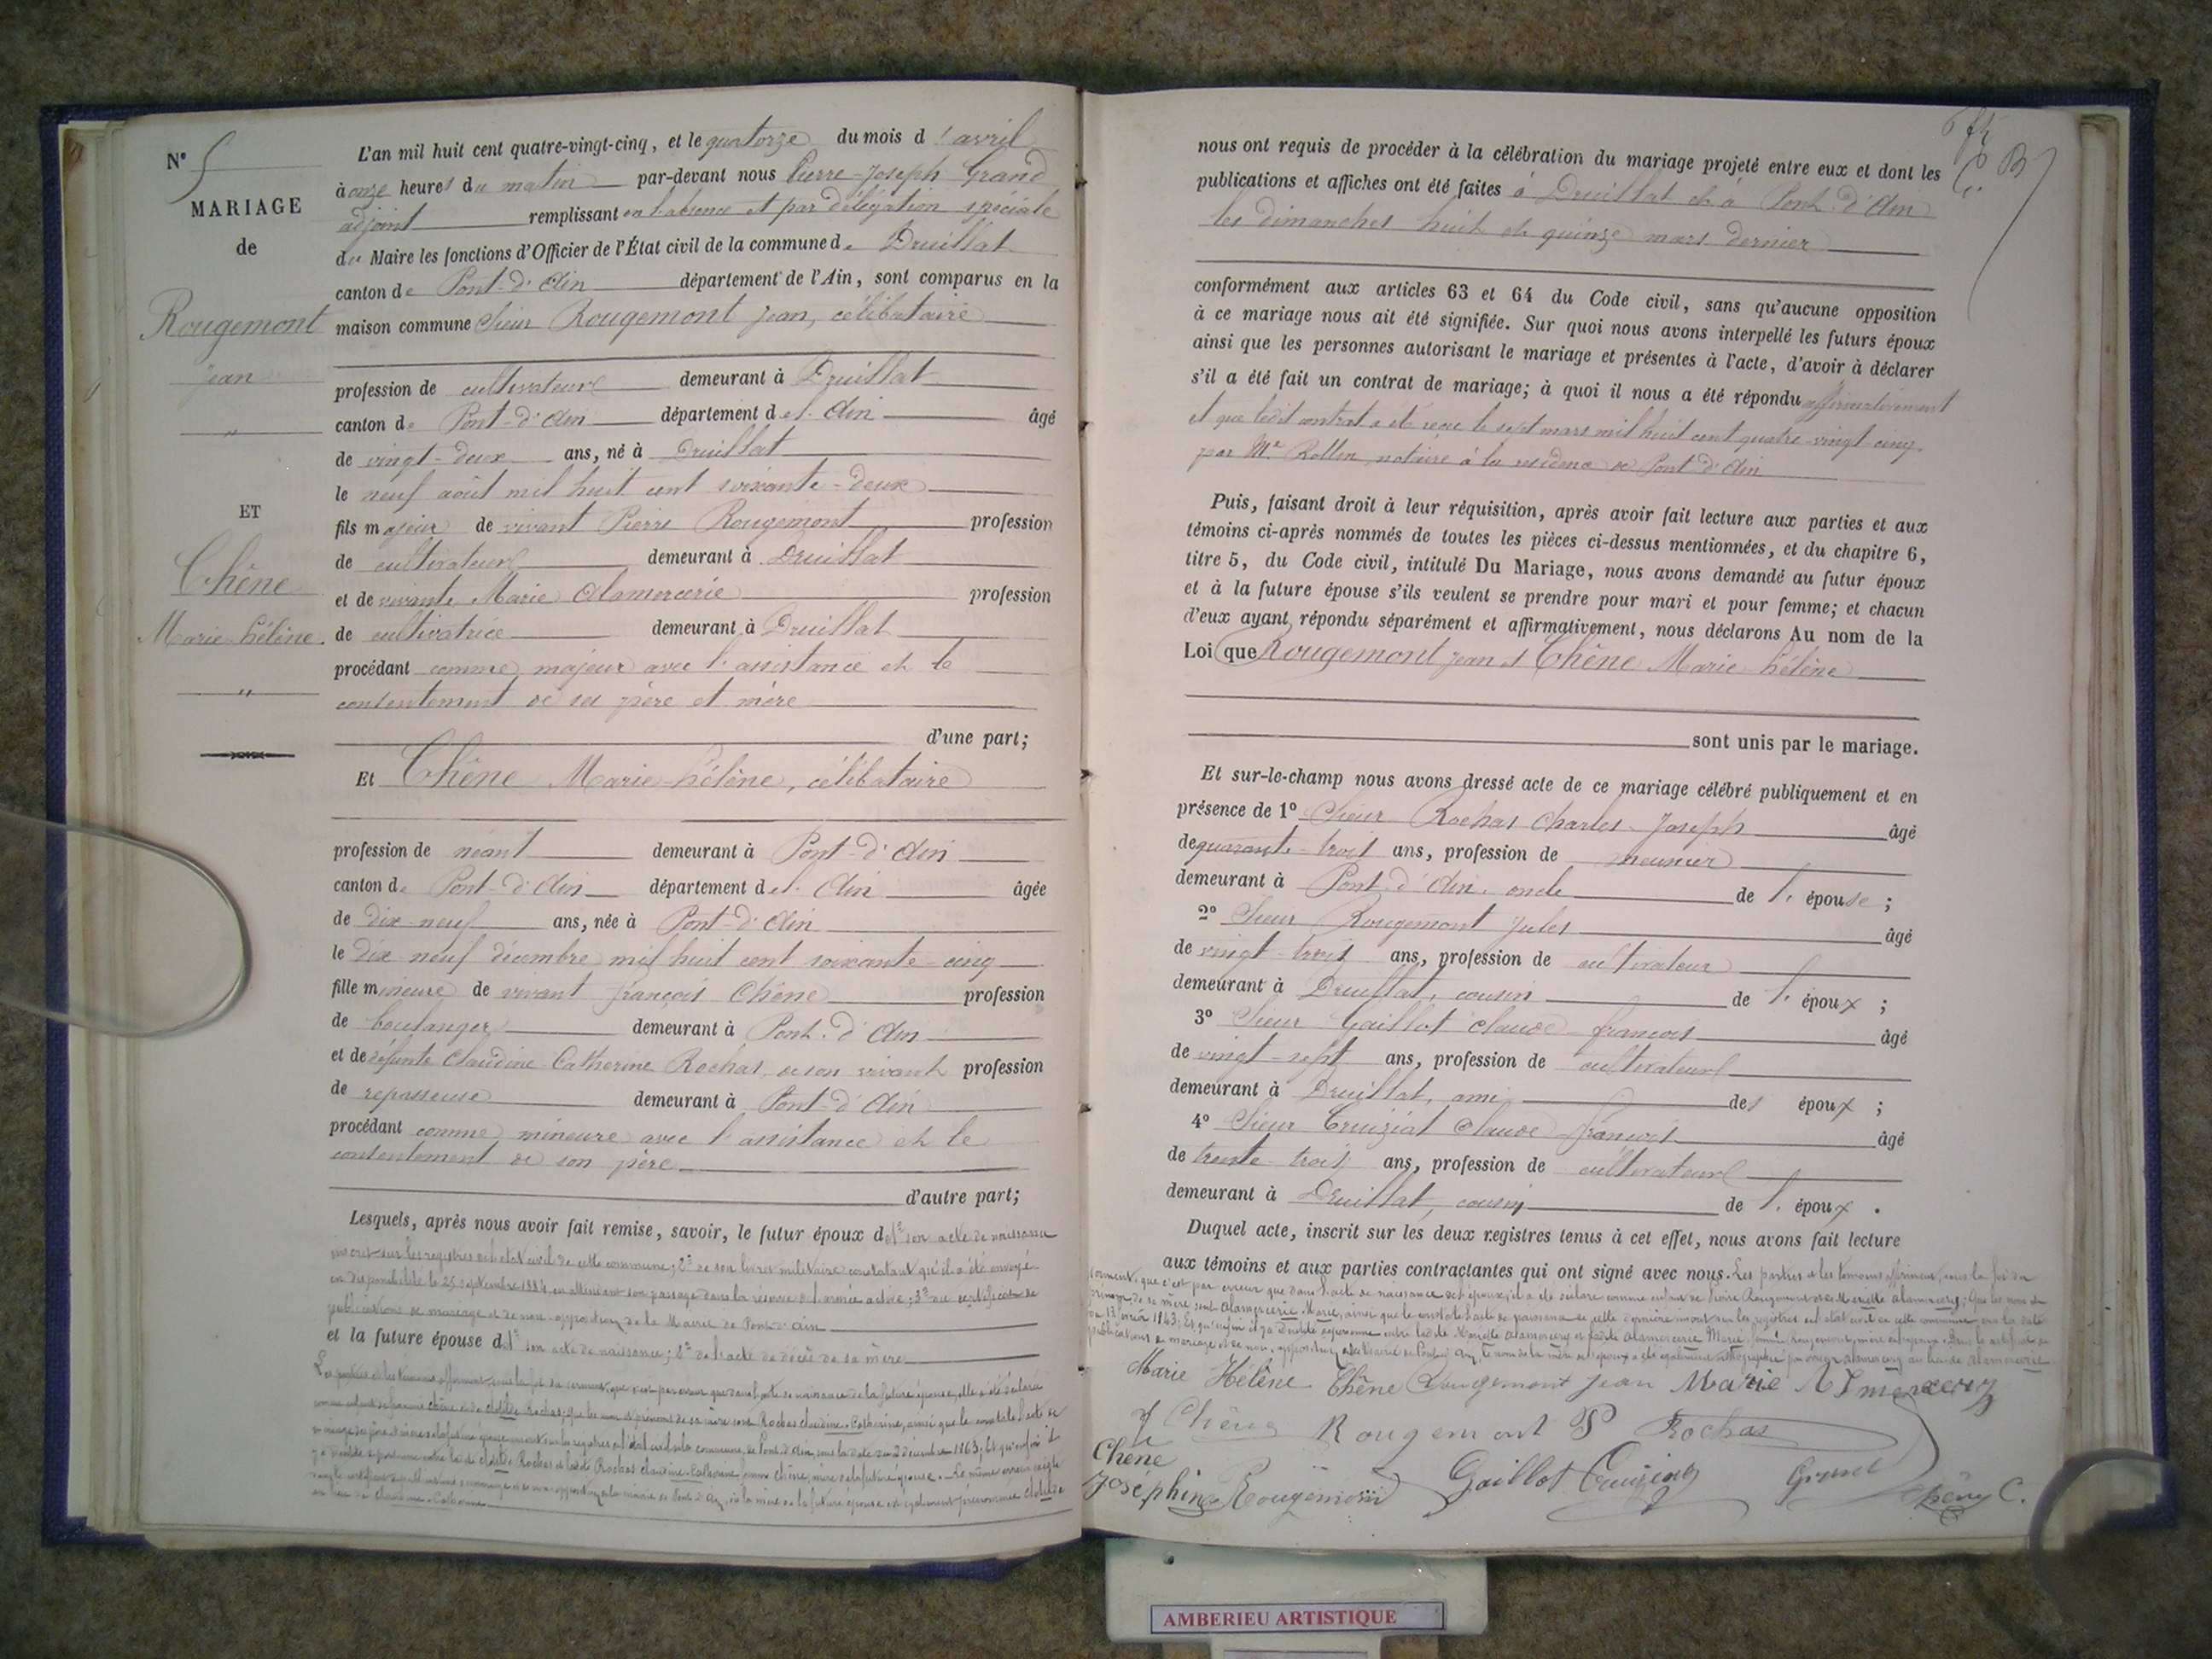 N° 5
MARIAGE
de
Rougemont
jean
"
ET
Chêne
Marie-hélène.
"
L'an mil huit cent quatre-vingt-cinq, et le quatorze du mois d'avril
à onze heures du matin par-devant nous Pierre-Joseph Grand
adjoint remplissant en l'absence et par délégation spéciale
du Maire les fonctions d'Officier de l'État civil de la commune de Druillat
canton de Pont-d'Ain département de l'Ain, sont comparus en la
maison commune Sieur Rougemont jean, célibataire
profession de cultivateur demeurant à Druillat
canton de Pont-d'Ain département de l'Ain âgé
de vingt-deux ans, né à Druillat
le neuf août mil huit cent soixante-deux
fils majeur de vivant Pierre Rougemont profession
de cultivateur demeurant à Druillat
et de vivante Marie Alamercerie profession
de cultivatrice demeurant à Druillat
procédant comme majeur avec l'assistance et le
consentement de ses père et mère
d'une part;
Et Chêne Marie-hélène, célibataire
profession de néant demeurant à Pont-d'Ain
canton de Pont-d'Ain département de l'Ain âgée
de dix-neuf ans, née à Pont-d'Ain
le dix neuf décembre mil huit cent soixante-cinq
fille mineure de vivant françois Chêne profession
de boulanger demeurant à Pont-d'Ain
et de défunte Claudine Catherine Rochas, de son vivant profession
de repasseuse demeurant à Pont-d'Ain
procédant comme mineure avec l'assistance et le
consentement de son père
d'autre part;
Lesquels, après nous avoir fait remise, savoir, le futur époux de 1° son acte de naissance
inscrit sur les registres de l'état civil de cette commune; 2° de son livret militaire constatant qu'il a été envoyé
en disponibilité le 25 septembre 1884, en attendant son passage dans la réserve de l'armée active; 3° du certificat de
publications de mariage et de non-opposition de la Mairie de Pont-d'Ain
et la future épouse de 1° son acte de naissance; 2° de l'acte de décès de sa mère
Les parties et les témoins affirment sous la foi du serment, que c'est par erreur que dans l'acte de naissance de la future épouse, elle a été déclarée
comme enfant de françois Chêne et de clotilde Rochas; que les nom et prénoms de sa mère sont Rochas claudine-Catherine, ainsi que le constate l'acte de
mariage de ses père et mère
au lieu de claudine-Catherine
nous ont requis de procéder à la célébration du mariage projeté entre eux et dont les
publications et affiches ont été faites à Druillat et à Pont-d'Ain
les dimanches huit et quinze mars dernier
conformément aux articles 63 et 64 du Code civil, sans qu'aucune opposition
à ce mariage nous ait été signifiée. Sur quoi nous avons interpellé les futurs époux
ainsi que les personnes autorisant le mariage et présentes à l'acte, d'avoir à déclarer
s'il a été fait un contrat de mariage; à quoi il nous a été répondu affirmativement
et que ledit contrat a été reçu le sept mars mil huit cent quatre-vingt-cinq
par Me Rollen, notaire à la résidence de Pont-d'Ain
Puis, faisant droit à leur réquisition, après avoir fait lecture aux parties et aux
témoins ci-après nommés de toutes les pièces ci-dessus mentionnées, et du chapitre 6,
titre 5, du Code civil, intitulé Du Mariage, nous avons demandé au futur époux
et à la future épouse s'ils veulent se prendre pour mari et pour femme; et chacun
d'eux ayant répondu séparément et affirmativement, nous déclarons Au nom de la
Loi que Rougemont jean et Chêne Marie-hélène
sont unis par le mariage.
Et sur-le-champ nous avons dressé acte de ce mariage célébré publiquement et en
présence de 1° Sieur Rochas Charles-Joseph âgé
de quarante-trois ans, profession de meunier
demeurant à Pont-d'Ain, oncle de l'épouse;
2° Sieur Rougemont jules âgé
de vingt-trois ans, profession de cultivateur
demeurant à Druillat, cousin de l'époux;
3° Sieur Gaillot claude-françois âgé
de vingt-sept ans, profession de cultivateur
demeurant à Druillat, ami des époux;
4° Sieur Cruiziat claude françois âgé
de trente-trois ans, profession de cultivateur
demeurant à Druillat, cousin de l'époux.
Duquel acte, inscrit sur les deux registres tenus à cet effet, nous avons fait lecture
aux témoins et aux parties contractantes qui ont signé avec nous. Les parties et les témoins affirment, sous la foi du
serment, que c'est par erreur que dans l'acte de naissance de l'époux, il a été déclaré comme enfant de Pierre Rougemont
Marie Hélène Chêne Rougemont jean Marie
Chêne Rougemont P Rochas
Chêne
Joséphine Rougemont Gaillot Cruiziat Grand Chêne C.
AMBERIEU ARTISTIQUE